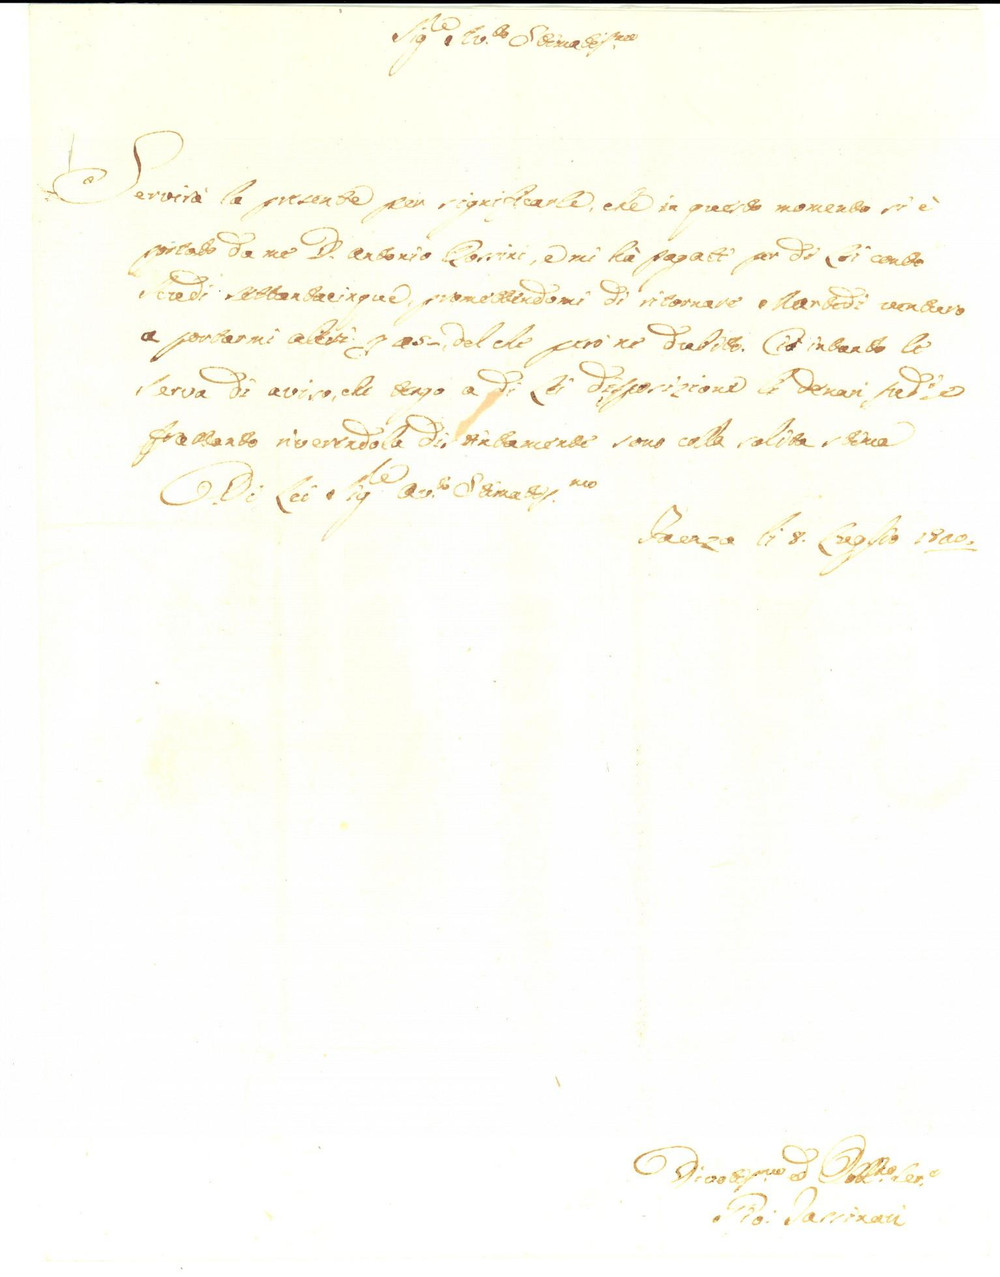 Sig.re Av.to Stimatis.mo
Servirà la presente per significarle, che in questo momento si è
portato da me D. Antonio Rossini, e mi hà pagati per di Lei conto
Scudi settantacinque, promettendomi di ritornare Martedì venturo
a portarmi altri 25, del che però ne dubito. Ciò intanto le
serva di aviso, che tengo a di Lei disposizione li denari sud.i e
frattanto riverendola distintamente sono colla solita stima
Di Lei Sig.re Av.to Stimatis.mo
Faenza li 8. Luglio 1800.
Divotis.mo ed Obb.mo Ser.e
Gio: